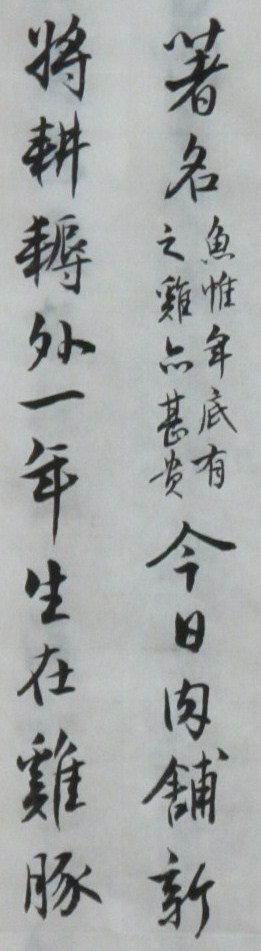 著名
魚惟年底有
之雞亦甚贵
今日肉舖新
將耕耨外一年生在雞豚